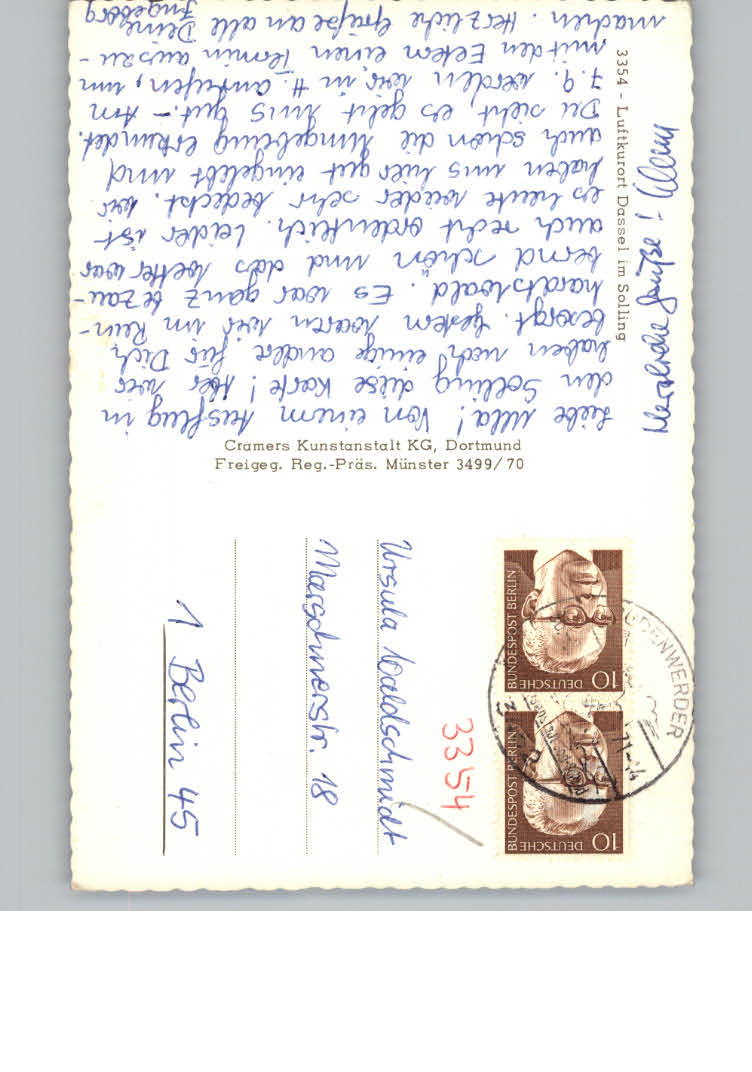 Liebe Ulla! Von einem Ausflug in
den Solling diese Karte! Aber wir
haben noch einige andere für Dich
besorgt. Gestern waren wir im Rein-
hardtswald. Es war ganz bezau-
bernd schön und das Wetter war
auch recht ordentlich. Leider ist
es heute wieder sehr bedeckt. Wir
haben uns hier gut eingelebt und
auch schon die Umgebung erkundet.
Du siehst, es geht uns gut. – Am
7.9. werden wir in H. anrufen, um
mit den Eltern einen Termin auszu-
machen. Herzliche Grüße an alle Deine
Ingeborg
Herzliche Grüße!
3354 - Luftkurort Dassel im Solling
Cramers Kunstanstalt KG, Dortmund
Freigeg. Reg.-Präs. Münster 3499/70
DEUTSCHE BUNDESPOST BERLIN
10
DEUTSCHE BUNDESPOST BERLIN
10
BODENWERDER
71-14
3354
Ursula Waldschmidt
Marschnerstr. 18
1 Berlin 45